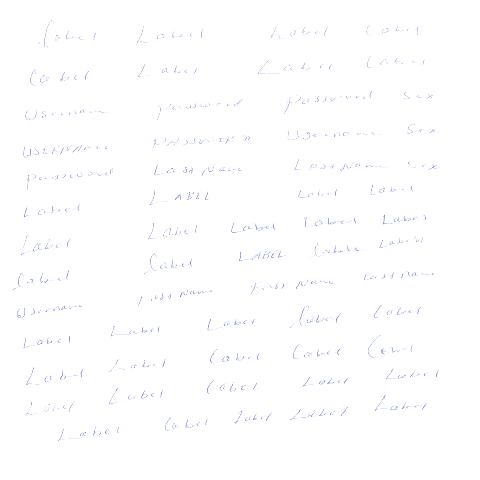 Label Label Label Label
Label Label Label Label
Username Password Password Sex
Username Password Username Sex
Password Last Name Last Name Sex
Label LABEL Label Label
Label Label Label Label Label
Label Label LABEL Label Label
Username First Name First Name Last Name
Label Label Label Label Label
Label Label Label Label Label
Label Label Label Label Label
Label Label Label Label Label